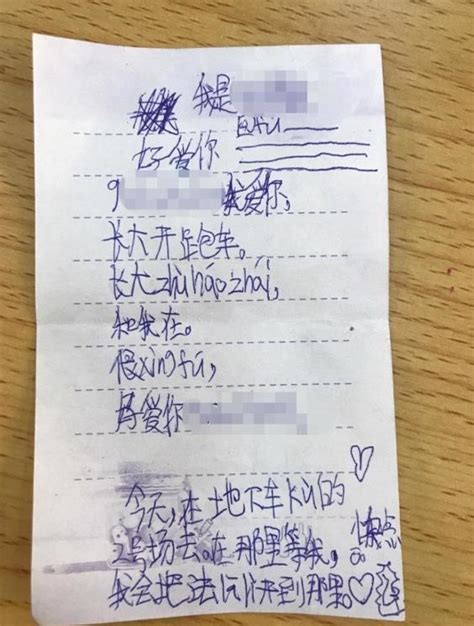 我是
好爱你
9 我爱你,
长大开跑车。
长大zhù háo zhái,
和我在。
很xìng fú,
再爱你
今天,在地下车kù的
2号场去。在那里等我,快点
我会把法 快到那里。